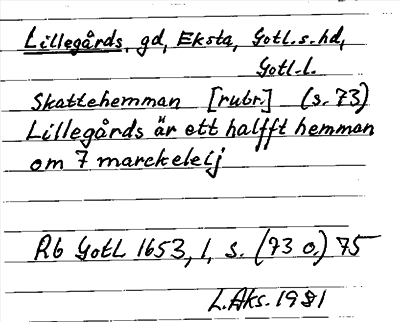 Lillegårds, gd, Eksta, Gotl. s. hd,
Gotl. l.
Skattehemman [rubr.] (s. 73)
Lillegårds är ett halfft hemman
om 7 marckeleij
Rb Gotl 1653, 1, s. (73 o.) 75
L. Aks. 1981